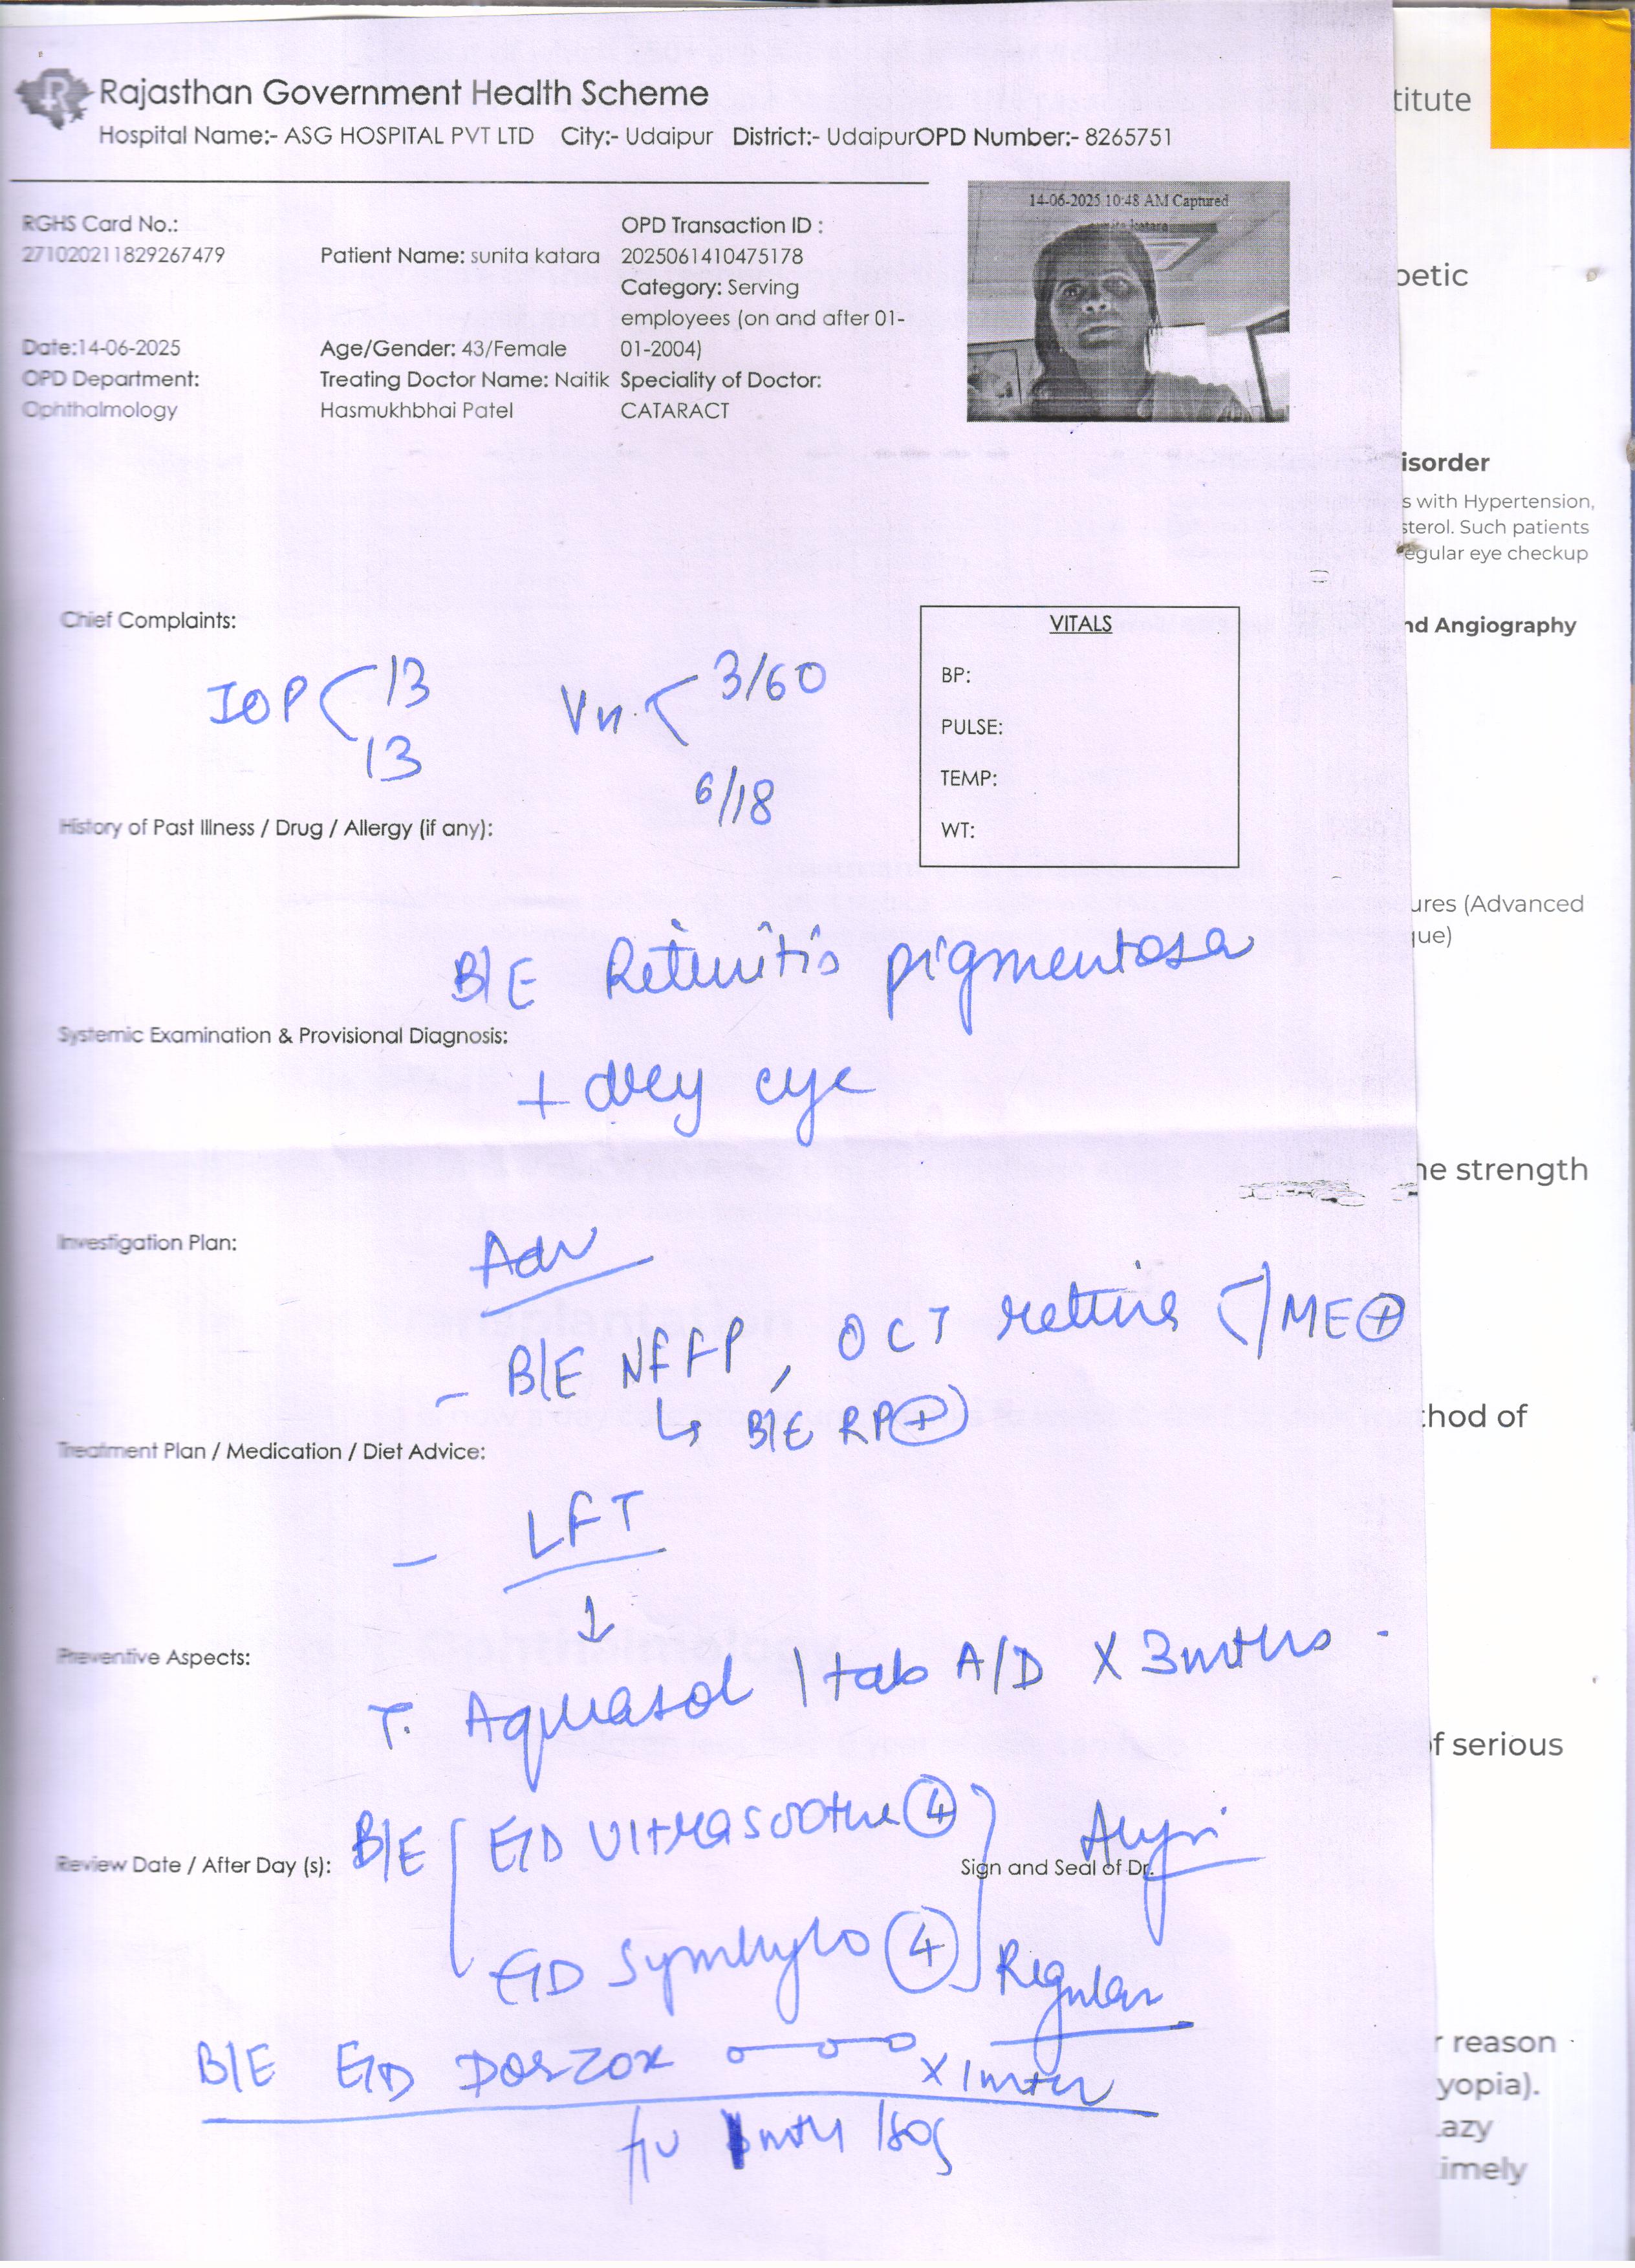 Rajasthan Government Health Scheme
Hospital Name:- ASG HOSPITAL PVT LTD City:- Udaipur District:- UdaipurOPD Number:- 8265751
titute
14-06-2025 10:48 AM Captured
sunita katara
RGHS Card No.:
271020211829267479
Patient Name: sunita katara
OPD Transaction ID :
2025061410475178
Category: Serving
employees (on and after 01-
01-2004)
Date:14-06-2025
Age/Gender: 43/Female
OPD Department:
Ophthalmology
Treating Doctor Name: Naitik
Hasmukhbhai Patel
Speciality of Doctor:
CATARACT
betic
isorder
s with Hypertension,
sterol. Such patients
egular eye checkup
nd Angiography
Chief Complaints:
IOP 13
13
Vn. 3/60
6/18
VITALS
BP:
PULSE:
TEMP:
WT:
History of Past Illness / Drug / Allergy (if any):
ures (Advanced
que)
B/E Retinitis pigmentosa
Systemic Examination & Provisional Diagnosis:
+ dry eye
he strength
Investigation Plan:
Adv
- B/E NFFP, OCT retina ME +
↳ B/E RP +
thod of
Treatment Plan / Medication / Diet Advice:
- LFT
↓
Preventive Aspects:
T. Aquasol 1 tab A/D X 3 mths
f serious
B/E E/D Ultrasoothe 4
Review Date / After Day (s):
Sign and Seal of Dr.
E/D Symhylo 4
Regular
B/E E/D Dorzox X 1 mth
f/u 1 mth / SOS
r reason
yopia).
Lazy
timely